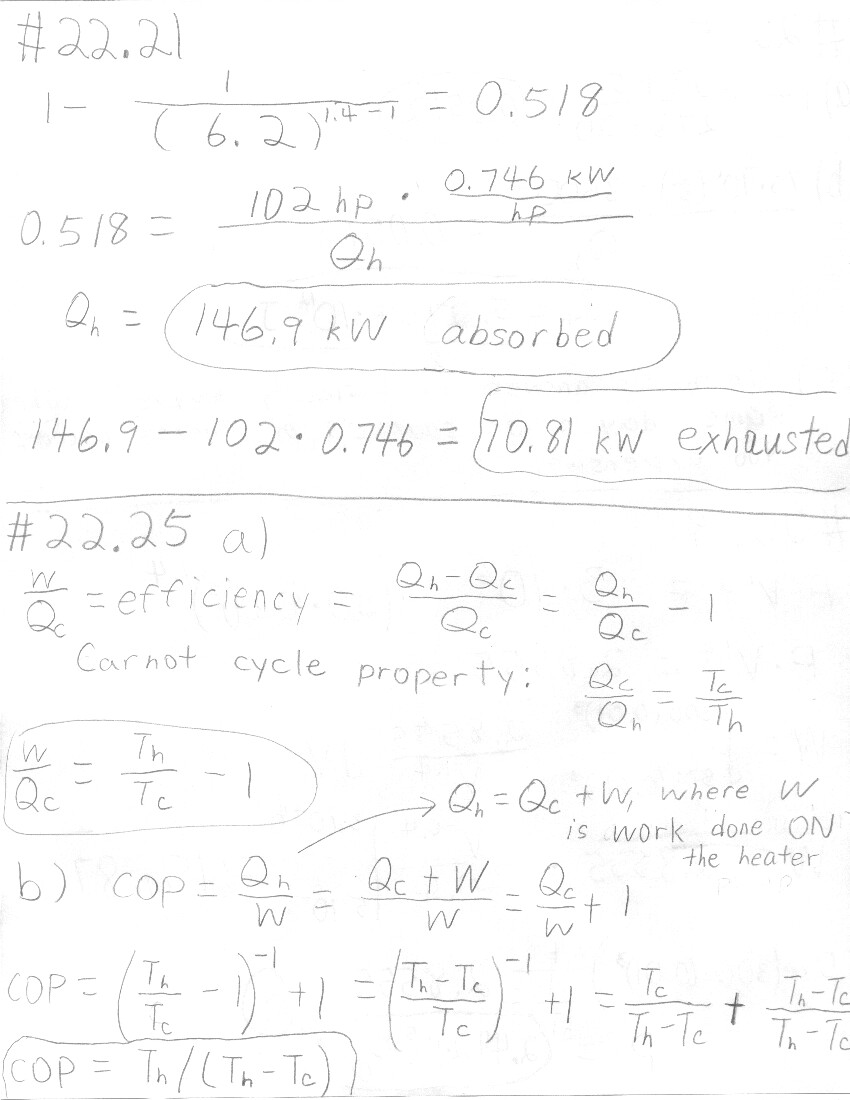 #22.21
1 - 1/(6.2)^(1.4-1) = 0.518
0.518 = (102 hp · 0.746 kW/hp)/Qh
Qh = 146.9 kW absorbed
146.9 - 102 · 0.746 = 70.81 kW exhausted
#22.25 a)
W/Qc = efficiency = (Qh - Qc)/Qc = Qh/Qc - 1
Carnot cycle property: Qc/Qh = Tc/Th
W/Qc = Th/Tc - 1
→ Qh = Qc + W, where W
is work done ON
the heater
b) COP = Qh/W = (Qc + W)/W = Qc/W + 1
COP = (Th/Tc - 1)^-1 + 1 = ((Th - Tc)/Tc)^-1 + 1 = Tc/(Th - Tc) + (Th - Tc)/(Th - Tc)
COP = Th/(Th - Tc)